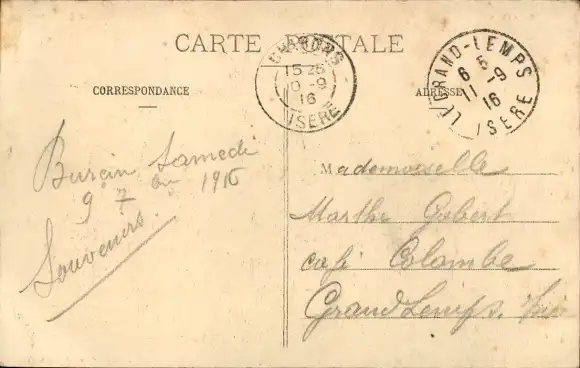 CARTE POSTALE
CORRESPONDANCE
ADRESSE
15 25
10 -9
16
ISERE
LE GRAND-LEMPS
6 5
11 -9
16
ISERE
Burcin Samedi
9 7 bre 1916
Souvenirs.
Mademoiselle
Marthe Gabert
café Colombe
Grand Lemps. Isère